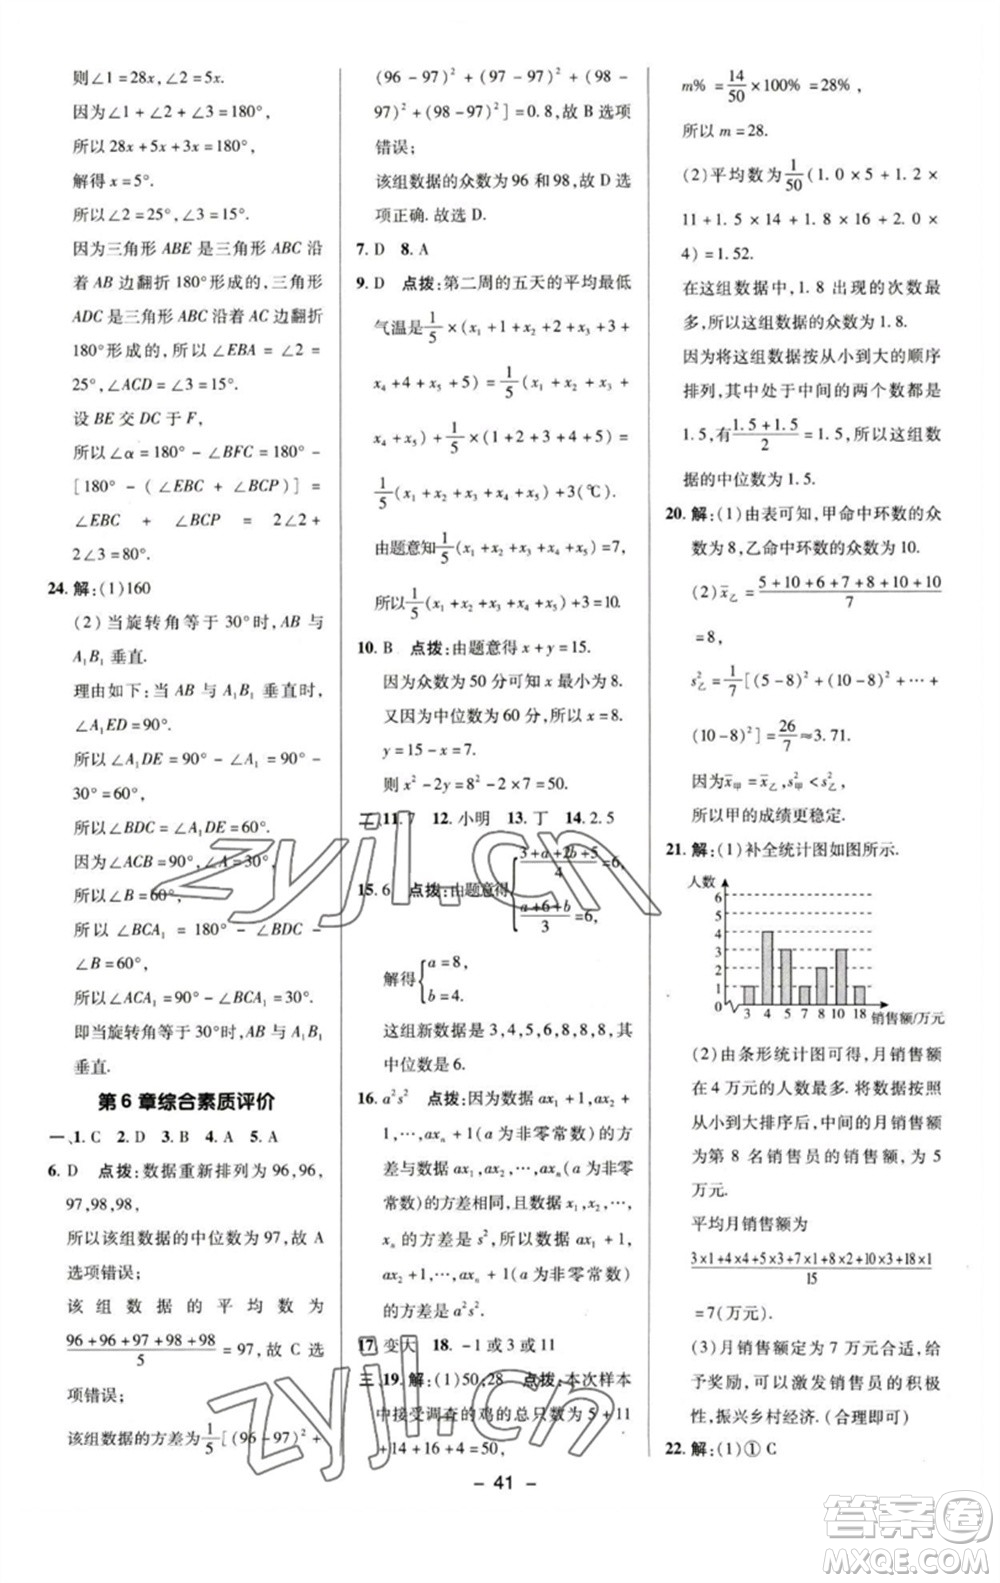 则∠1=28x,∠2=5x.
因为∠1+∠2+∠3=180°,
所以 28x+5x+3x=180°,
解得 x=5°.
所以∠2=25°,∠3=15°.
因为三角形 ABE 是三角形 ABC 沿
着 AB 边翻折 180°形成的,三角形
ADC 是三角形 ABC 沿着 AC 边翻折
180°形成的,所以∠EBA=∠2=
25°,∠ACD=∠3=15°.
设 BE 交 DC 于 F,
所以∠α=180°-∠BFC=180°-
[180°-(∠EBC+∠BCP)]=
∠EBC+∠BCP=2∠2+
2∠3=80°.
24. 解:(1)160
(2)当旋转角等于 30°时,AB 与
A₁B₁ 垂直.
理由如下:当 AB 与 A₁B₁ 垂直时,
∠A₁ED=90°,
所以∠A₁DE=90°-∠A₁=90°-
30°=60°,
所以∠BDC=∠A₁DE=60°.
因为∠ACB=90°,∠A=30°,
所以∠B=60°,
所以∠BCA₁=180°-∠BDC-
∠B=60°,
所以∠ACA₁=90°-∠BCA₁=30°.
即当旋转角等于 30°时,AB 与 A₁B₁
垂直.
第 6 章综合素质评价
一、1. C 2. D 3. B 4. A 5. A
6. D 点拨:数据重新排列为 96,96,
97,98,98,
所以该组数据的中位数为 97,故 A
选项错误;
该组数据的平均数为
(96+96+97+98+98)/5=97,故 C 选
项错误;
该组数据的方差为 1/5[(96-97)²+
(96-97)²+(97-97)²+(98-
97)²+(98-97)²]=0.8,故 B 选项
错误;
该组数据的众数为 96 和 98,故 D 选
项正确. 故选 D.
7. D 8. A
9. D 点拨:第二周的五天的平均最低
气温是 1/5×(x₁+1+x₂+2+x₃+3+
x₄+4+x₅+5)=1/5(x₁+x₂+x₃+
x₄+x₅)+1/5×(1+2+3+4+5)=
1/5(x₁+x₂+x₃+x₄+x₅)+3(℃).
由题意知 1/5(x₁+x₂+x₃+x₄+x₅)=7,
所以 1/5(x₁+x₂+x₃+x₄+x₅)+3=10.
10. B 点拨:由题意得 x+y=15.
因为众数为 50 分可知 x 最小为 8.
又因为中位数为 60 分,所以 x=8.
y=15-x=7.
则 x²-2y=8²-2×7=50.
二、11. 7 12. 小明 13. 丁 14. 2.5
15. 6 点拨:由题意得{(3+a+2b+5)/4=6, (a+6+b)/3=6,
解得{a=8, b=4.
这组新数据是 3,4,5,6,8,8,8,其
中位数是 6.
16. a²s² 点拨:因为数据 ax₁+1,ax₂+
1,…,axₙ+1(a 为非零常数)的方
差与数据 ax₁,ax₂,…,axₙ(a 为非零
常数)的方差相同,且数据 x₁,x₂,…,
xₙ 的方差是 s²,所以数据 ax₁+1,
ax₂+1,…,axₙ+1(a 为非零常数)
的方差是 a²s².
17. 变大 18. -1 或 3 或 11
三、19. 解:(1)50;28 点拨:本次样本
中接受调查的鸡的总只数为 5+11
+14+16+4=50,
m%=14/50×100%=28%,
所以 m=28.
(2)平均数为 1/50(1.0×5+1.2×
11+1.5×14+1.8×16+2.0×
4)=1.52.
在这组数据中,1.8 出现的次数最
多,所以这组数据的众数为 1.8.
因为将这组数据按从小到大的顺序
排列,其中处于中间的两个数都是
1.5,有(1.5+1.5)/2=1.5,所以这组数
据的中位数为 1.5.
20. 解:(1)由表可知,甲命中环数的众
数为 8,乙命中环数的众数为 10.
(2)x̄乙=(5+10+6+7+8+10+10)/7
=8,
s²乙=1/7[(5-8)²+(10-8)²+…+
(10-8)²]=26/7≈3.71.
因为x̄甲=x̄乙,s²甲<s²乙,
所以甲的成绩更稳定.
21. 解:(1)补全统计图如图所示.
人数
6
5
4
3
2
1
0
3 4 5 7 8 10 18 销售额/万元
(2)由条形统计图可得,月销售额
在 4 万元的人数最多,将月销售额
从小到大排序后,中间的月销售额
为第 8 名销售员的销售额,为 5
万元.
平均月销售额为
(3×1+4×4+5×3+7×1+8×2+10×3+18×1)/15
=7(万元).
(3)月销售额定为 7 万元合适,给
予奖励,可以激发销售员的积极
性,振兴乡村经济.(合理即可)
22. 解:(1)① C
- 41 -
zyjl.cn
zyjl.cn
答案圈
MXQE.COM